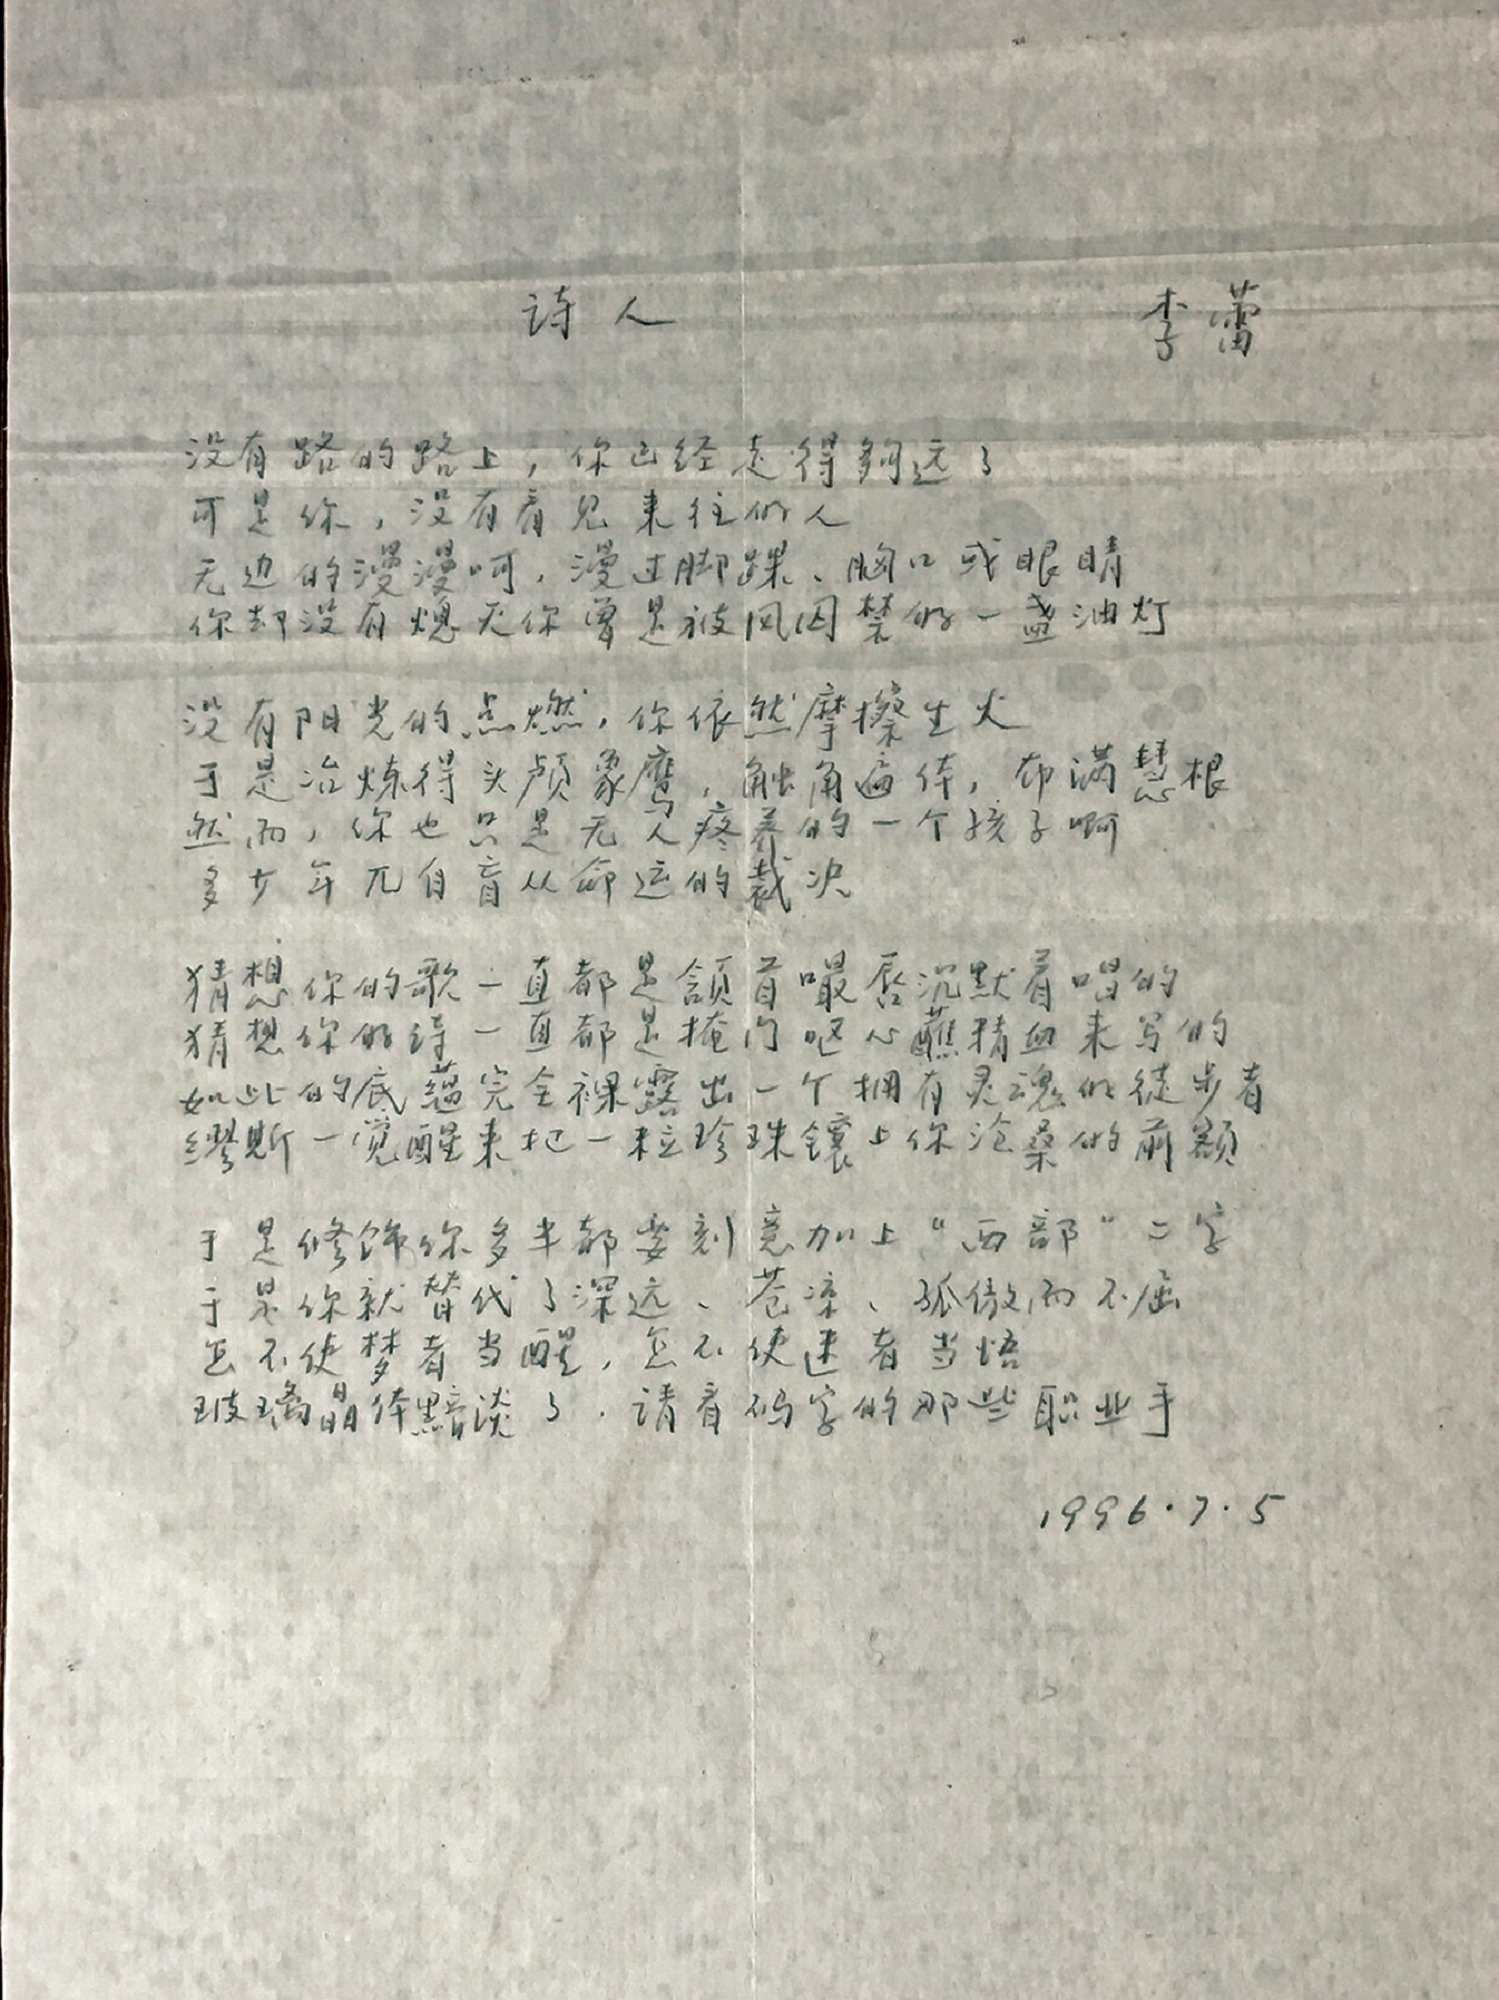 诗人 李蕾
没有路的路上，你已经走得够远了
可是你，没有看见来往的人
无边的漫漫呵，漫过脚踝、胸口或眼睛
你却没有熄灭你曾是被风囚禁的一盏油灯
没有阳光的点燃，你依然摩擦生火
于是冶炼得头颅象鹰，触角遍体，布满慧根
然而，你也只是无人疼养的一个孩子啊
多少年兀自盲从命运的裁决
猜想你的歌一直都是颔首嘬唇沉默着唱的
猜想你的诗一直都是掩门呕心蘸精血来写的
如此的底蕴完全裸露出一个拥有灵魂的徒步者
缪斯一觉醒来把一粒珍珠镶上你沧桑的前额
于是修饰你多半都要刻意加上“西部”二字
于是你就替代了深远、苍凉、孤傲而不屈
怎不使梦者当醒，怎不使迷者当悟
玻璃晶体黯淡了．请看码字的那些职业手
1996.7.5